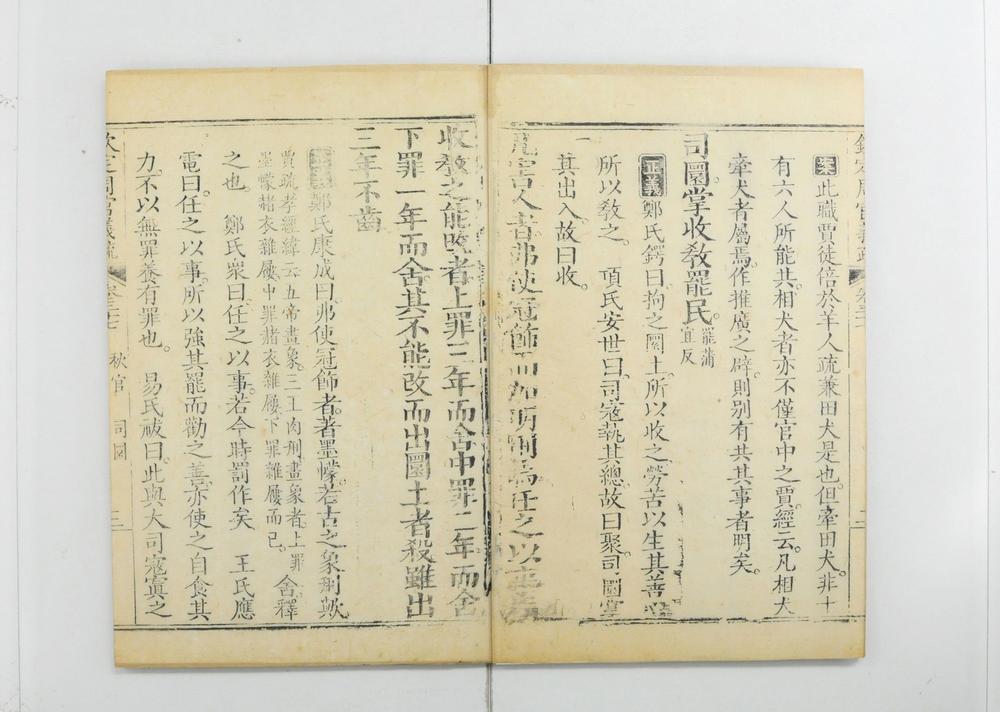 案此職賈徒倍於羊人疏兼田犬是也但牽田犬非十
有六人所能共相犬者亦不僅官中之賈經云凡相犬
牽犬者屬焉作推廣之辭則別有共其事者明矣
司圜掌收敎罷民罷蒲
直反
正義鄭氏鍔曰拘之圜土所以收之勞苦以生其善
所以敎之 項氏安世曰司寇執其總故曰聚司圜掌
其出入故曰收
凡害人者弗使冠飾而加明刑焉任之以事而
收敎之能改者上罪三年而舍中罪二年而舍
下罪一年而舍其不能改而出圜土者殺雖出
三年不齒
鄭氏康成曰弗使冠飾者著墨幪若古之象刑歟
賈疏孝經緯云五帝畫象三王肉刑畫象者上罪
墨幪赭衣雜屨中罪赭衣雜屨下罪雜屨而已
舍釋
之也 鄭氏衆曰任之以事若今時罰作矣 王氏應
電曰任之以事所以強其罷而勸之善亦使之自食其
力不以無罪養有罪也 易氏祓曰此與大司寇寘之
欽定周官義疏 秋官 司圜 三